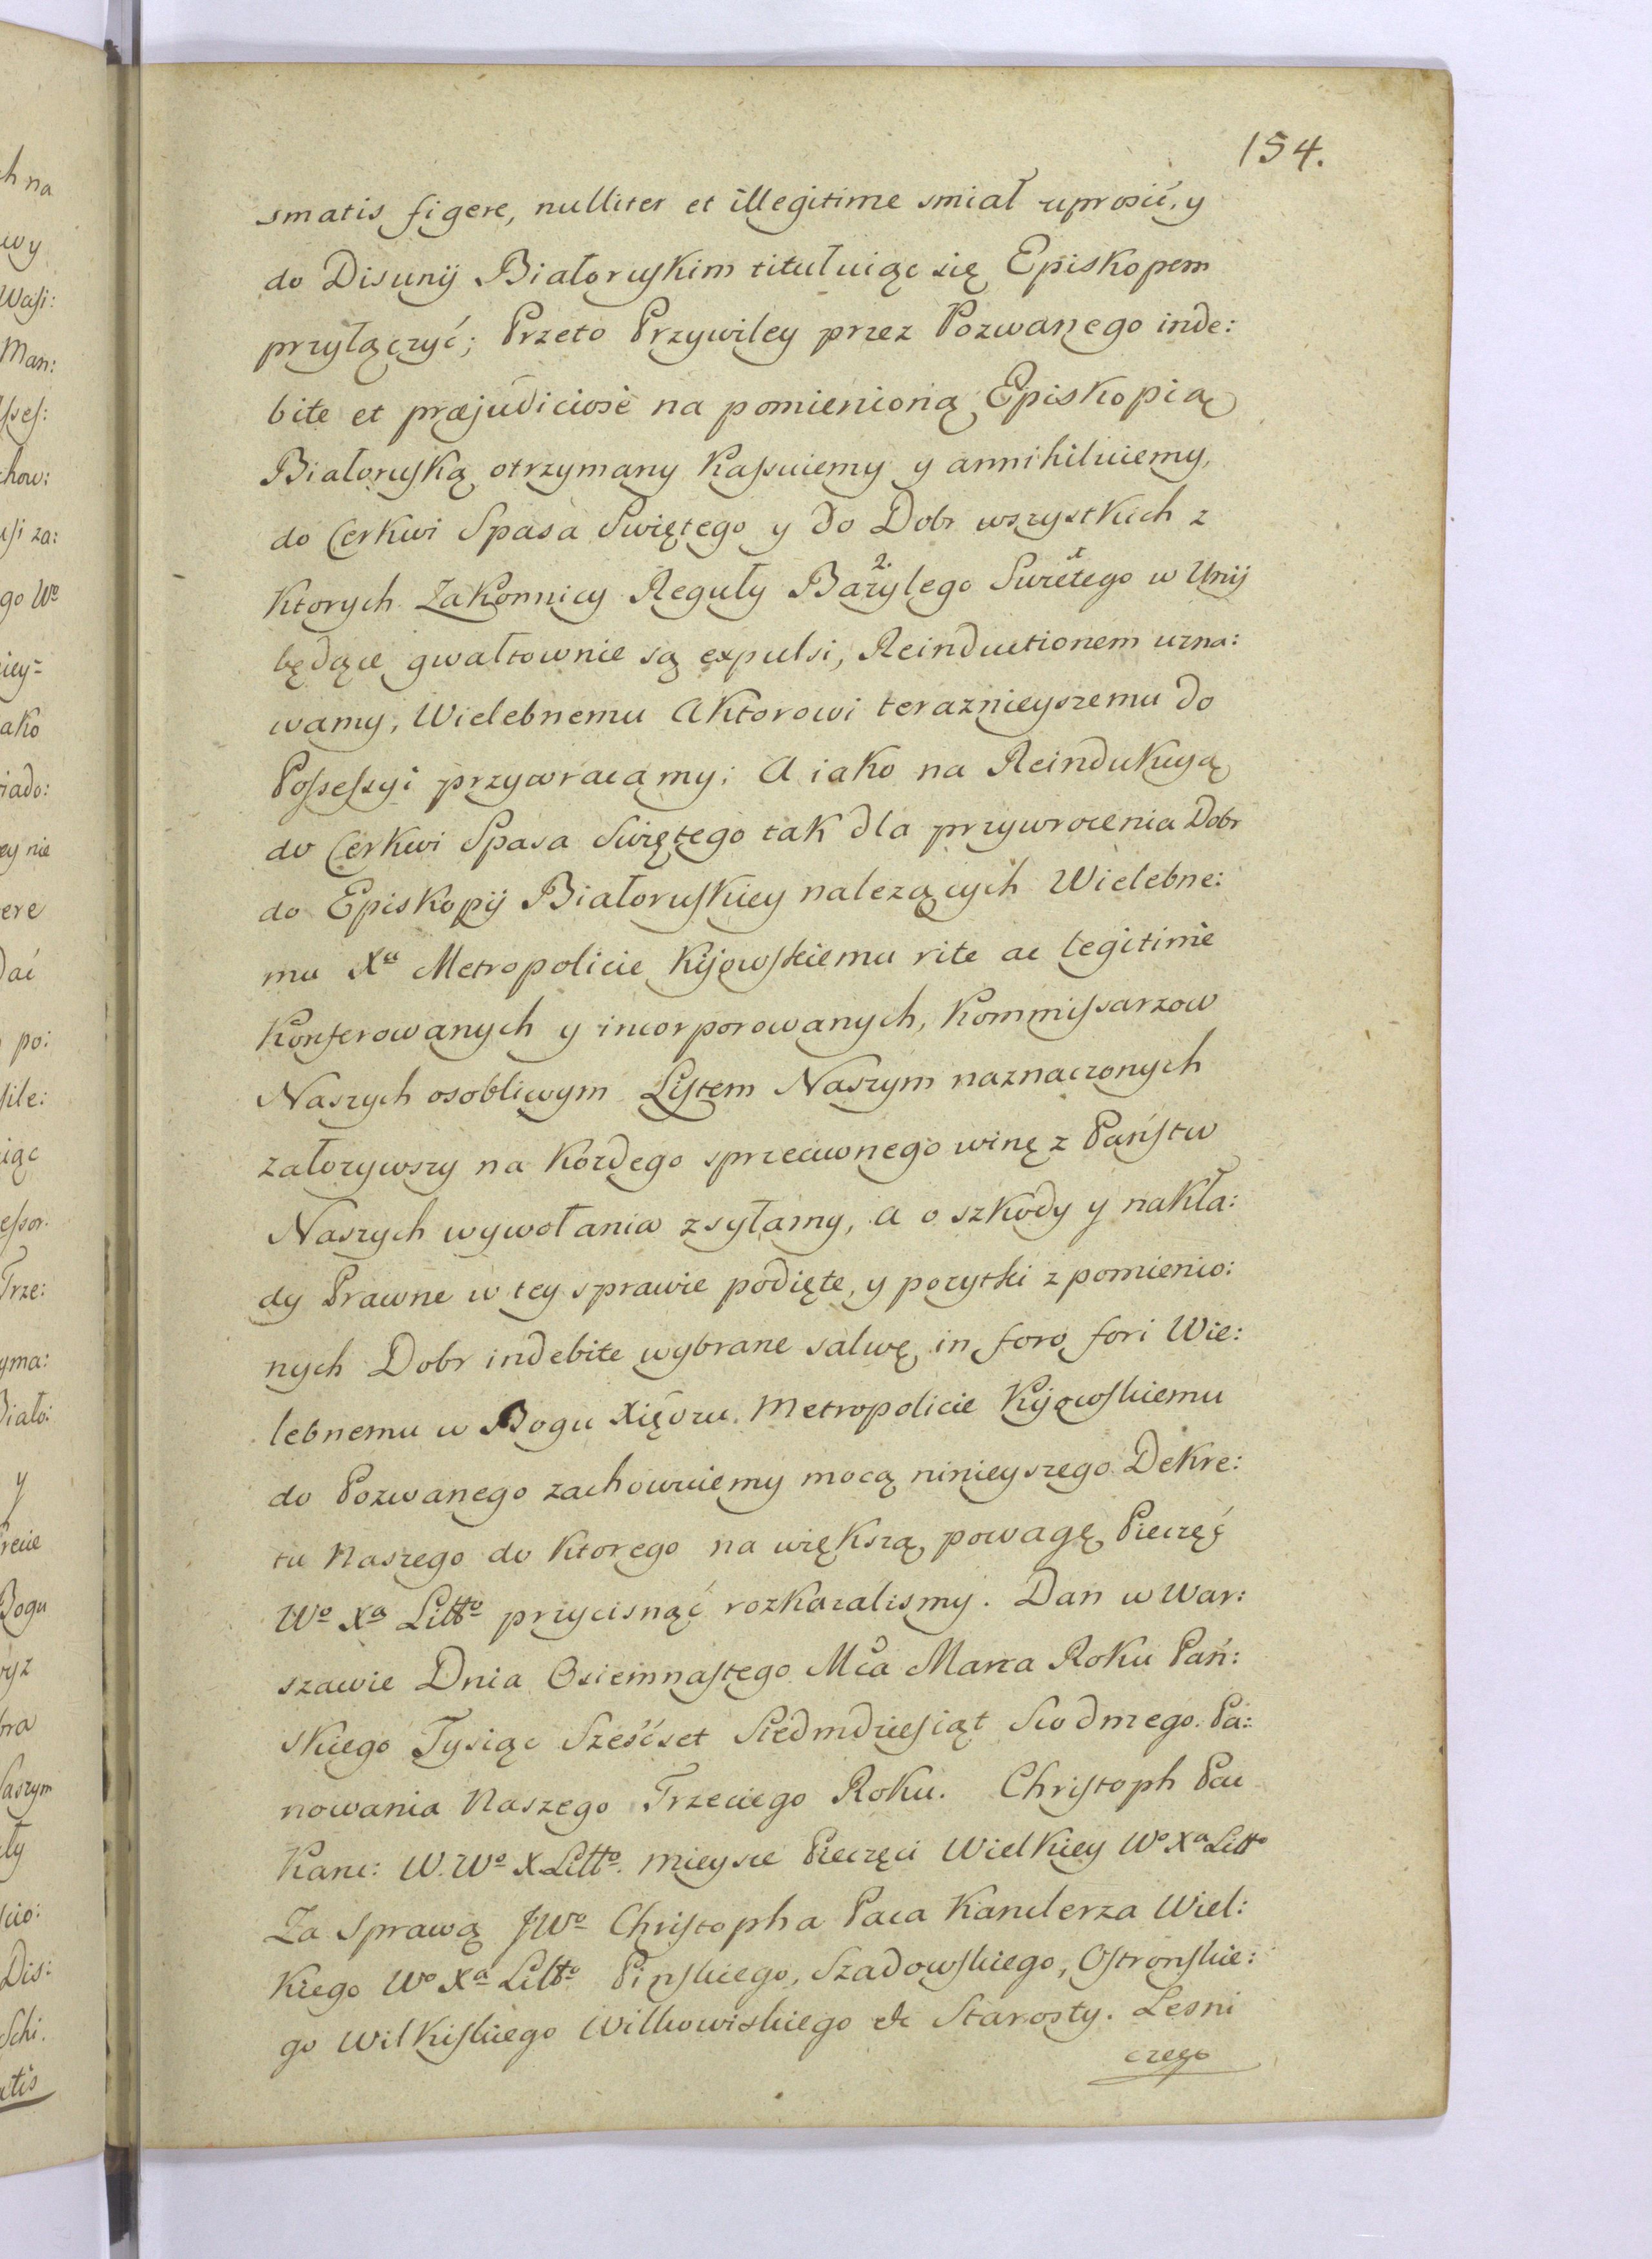 154.
smatis figere, nulliter et illegitime smiał uprosić, y
do Disunij Białoruskim titułuiąc się Episkopem
przyłączyć; Przeto Przywiley przez Pozwanego inde:
bite et præjudiciosè na pomienioną Episkopią
Białoruską otrzymany Kassuiemy y annihiluiemy,
do Cerkwi Spasa Swiętego y do Dobr wszystkich z
Ktorych Zakonnicy Reguły Bazylego Swiętego w Unij
będące gwałtownie są expulsi, Reinductionem uzna:
wamy, Wielebnemu Aktorowi teraznieyszemu do
Possessyi przywracamy; A iako na Reindukcyą
do Cerkwi Spasa Swiętego tak dla przywrocenia Dobr
do Episkopij Białoruskiey nalezących Wielebne:
mu Xa Metropolicie Kijowskiemu rite ac legitime
Konferowanych y incorporowanych, Kommissarzow
Naszych osobliwym Listem Naszym naznaczonych
załozywszy na Kozdego sprzeciwnego winę z Państw
Naszych wywołania zsyłamy, a o szkody y nakła:
dy Prawne w tey sprawie podięte, y pozytki z pomienio:
nych Dobr indebite wybrane salwę in foro fori Wie:
lebnemu w Bogu Xiędzu Metropolicie Kijowskiemu
do Pozwanego zachowuiemy mocą ninieyszego Dekre:
tu Naszego do Ktorego na większą powagę Pieczęć
Wo Xa Litto przycisnąć rozkazalismy. Dan w War:
szawie Dnia Osiemnastego Mca Marca Roku Pań:
skiego Tysiąc Sześćset Siedmdziesiąt Siodmego. Pa:
nowania Naszego Trzeciego Roku. Christoph Pac
Kanc: W. Wo X Litto. Mieysce Pieczęci Wielkiey Wo Xa Litto
Za Sprawą JWo Christopha Paca Kanclerza Wiel:
Kiego Wo Xa Litto Pinskiego, Szadowskiego, Ostronskie:
go Wilkiskiego Wilkowiskiego &c Starosty. Lesni
czego